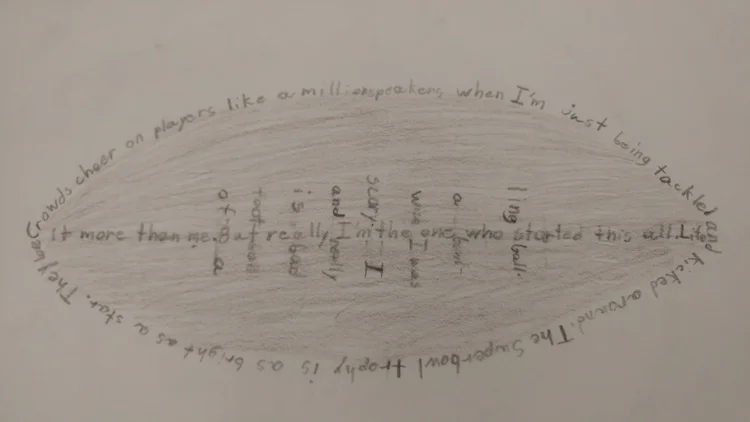 Crowds cheer on players like a million speakers when I'm just being tackled and
kicked around. The Superbowl trophy is as bright as a star. They
it more than me. But really I'm the one who started this all. Life
of a
football
is bad
and really
scary. I
wish I was
a bowl-
ling ball.